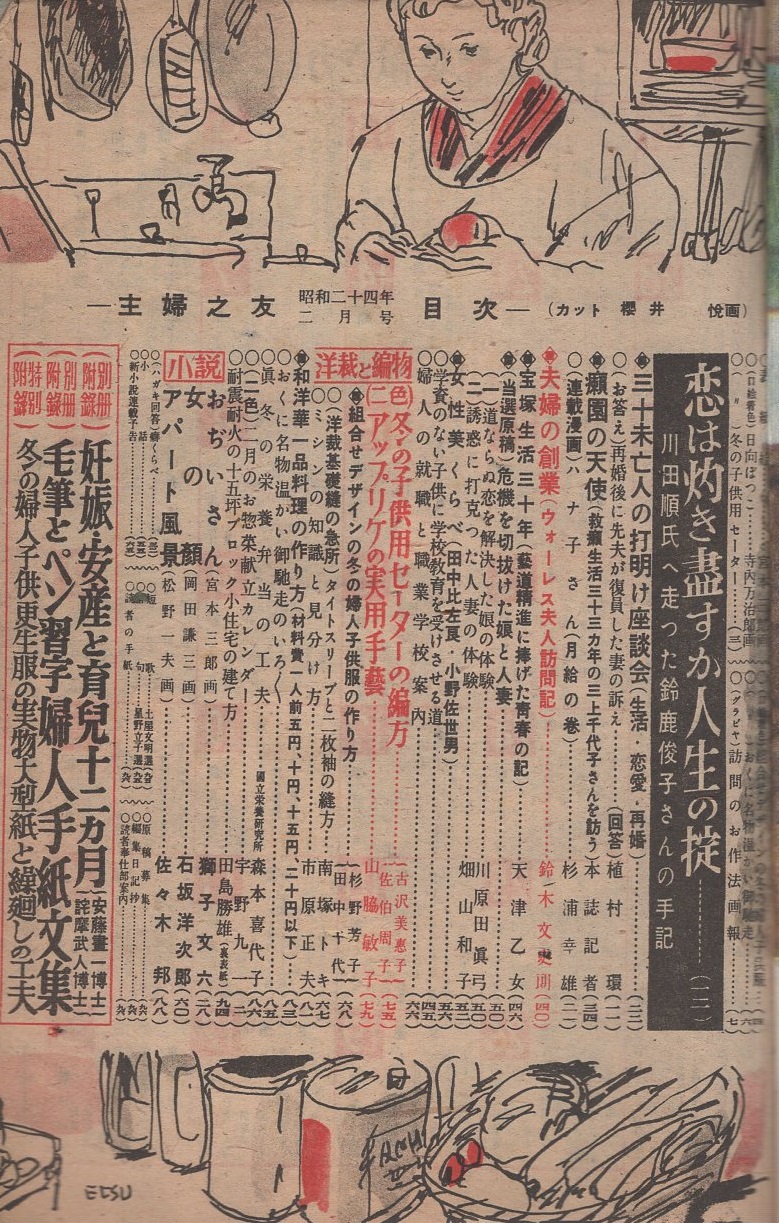 ―主婦之友 昭和二十四年二月号 目次―(カット 櫻井 悅画)
(口絵着色)日向ぼつこ……寺内万治郎画
(〃)冬の子供用セーター……(三)
(グラビヤ)訪問のお作法画報……(七)
恋は灼き盡すか人生の掟……(二二)
川田順氏へ走つた鈴鹿俊子さんの手記
三十未亡人の打明け座談会(生活・恋愛・再婚)……(二三)
○(お答え)再婚後に先夫が復員した妻の訴え……(回答)植村環(一一)
癩園の天使(救癩生活三十三カ年の三上千代子さんを訪う)本誌記者(三四)
○(連載漫画)ハナ子さん(月給の巻)……杉浦幸雄(二一)
夫婦の創業(ウォーレス夫人訪問記)……鈴木文史朗(四〇)
宝塚生活三十年(藝道精進に捧げた青春の記)……天津乙女(四六)
(当選原稿)危機を切抜けた娘と人妻……(五〇)
(一)道ならぬ恋を解決した娘の体験……川原田眞弓(五〇)
(二)誘惑に打克つた人妻の体験……畑山和子(五二)
女性美くらべ(田中比左良・小野佐世男)……(五六)
○学資のない子供に学校教育を受けさせる道……(四五)
○婦人の就職と職業学校案内……(六六)
洋裁と編物
(二色)冬の子供用セーターの編方……古沢美恵子 佐伯周子(七五)
アップリケの実用手藝……山脇敏子(七九)
組合せデザインの冬の婦人子供服の作り方……杉野芳子 田中千代(六八)
○(洋裁基礎縫の急所)タイトスリーブと二枚袖の縫方……南塚トキ(六七)
○ミシンの知識と見分け方……市原正夫(八八)
和洋華一品料理の作り方(材料費一人前五円、十円、十五円、二十円以下)……(八三)
○おくに名物温かい御馳走のいろ〱……(八五)
○眞冬の栄養弁当の工夫……國立栄養研究所 森本喜代子(八六)
○(二色)二月のお惣菜献立カレンダー……宇野九一(二)
○耐震耐火の十五坪ブロック小住宅の建て方……田島勝雄(裏表紙)(九四)
小説
おぢいさん(宮本三郎画)……獅子文六(二八)
女の顔(岡田謙三画)……石坂洋次郎(六〇)
アパート風景(松野一夫画)……佐々木邦(八八)
○(ハガキ回答)癖くらべ
○小話
○新小説連載予告
短歌 土屋文明選
俳句 星野立子選
○読者の手紙
○原稿募集
○編集日記抄
○読者奉仕部案内
(別冊附錄)妊娠・安産と育兒十二カ月(安藤畫一博士 詫摩武人博士)
(別冊附錄)毛筆とペン習字婦人手紙文集
(特別附錄)冬の婦人子供更生服の実物大型紙と繰廻しの工夫
ETSU